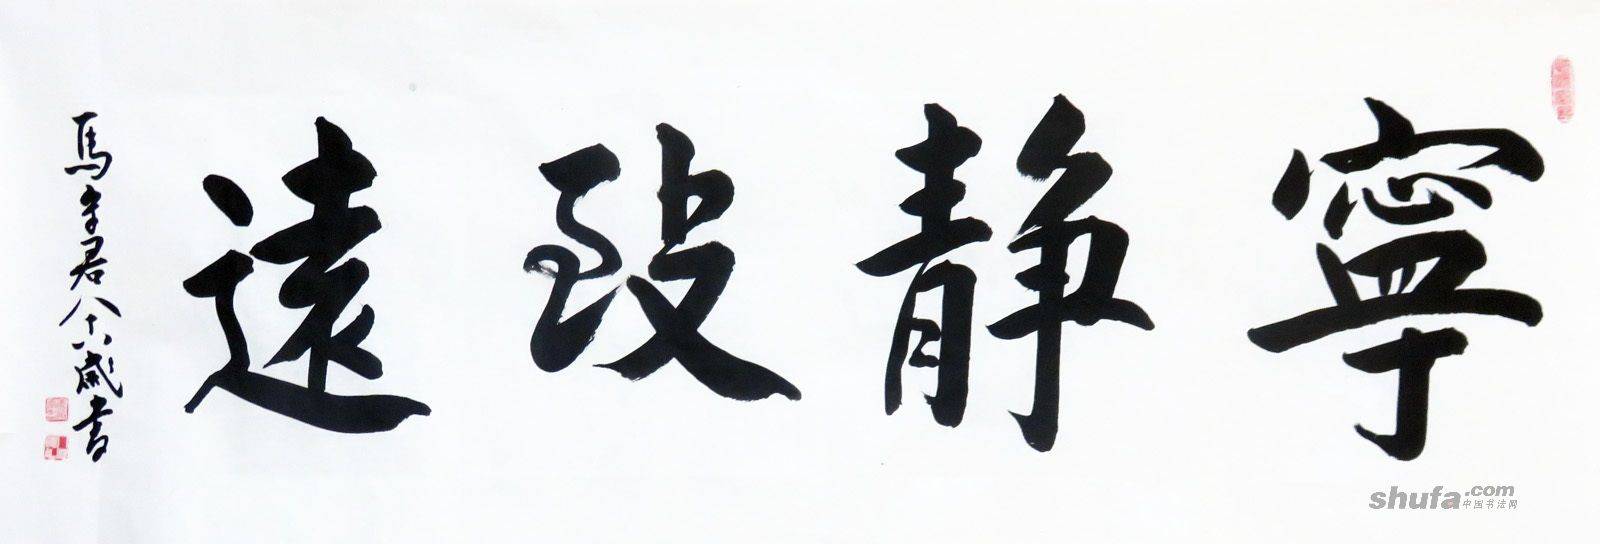 寧靜致遠
馬守君八十八歲書
shufa.com
中国书法网